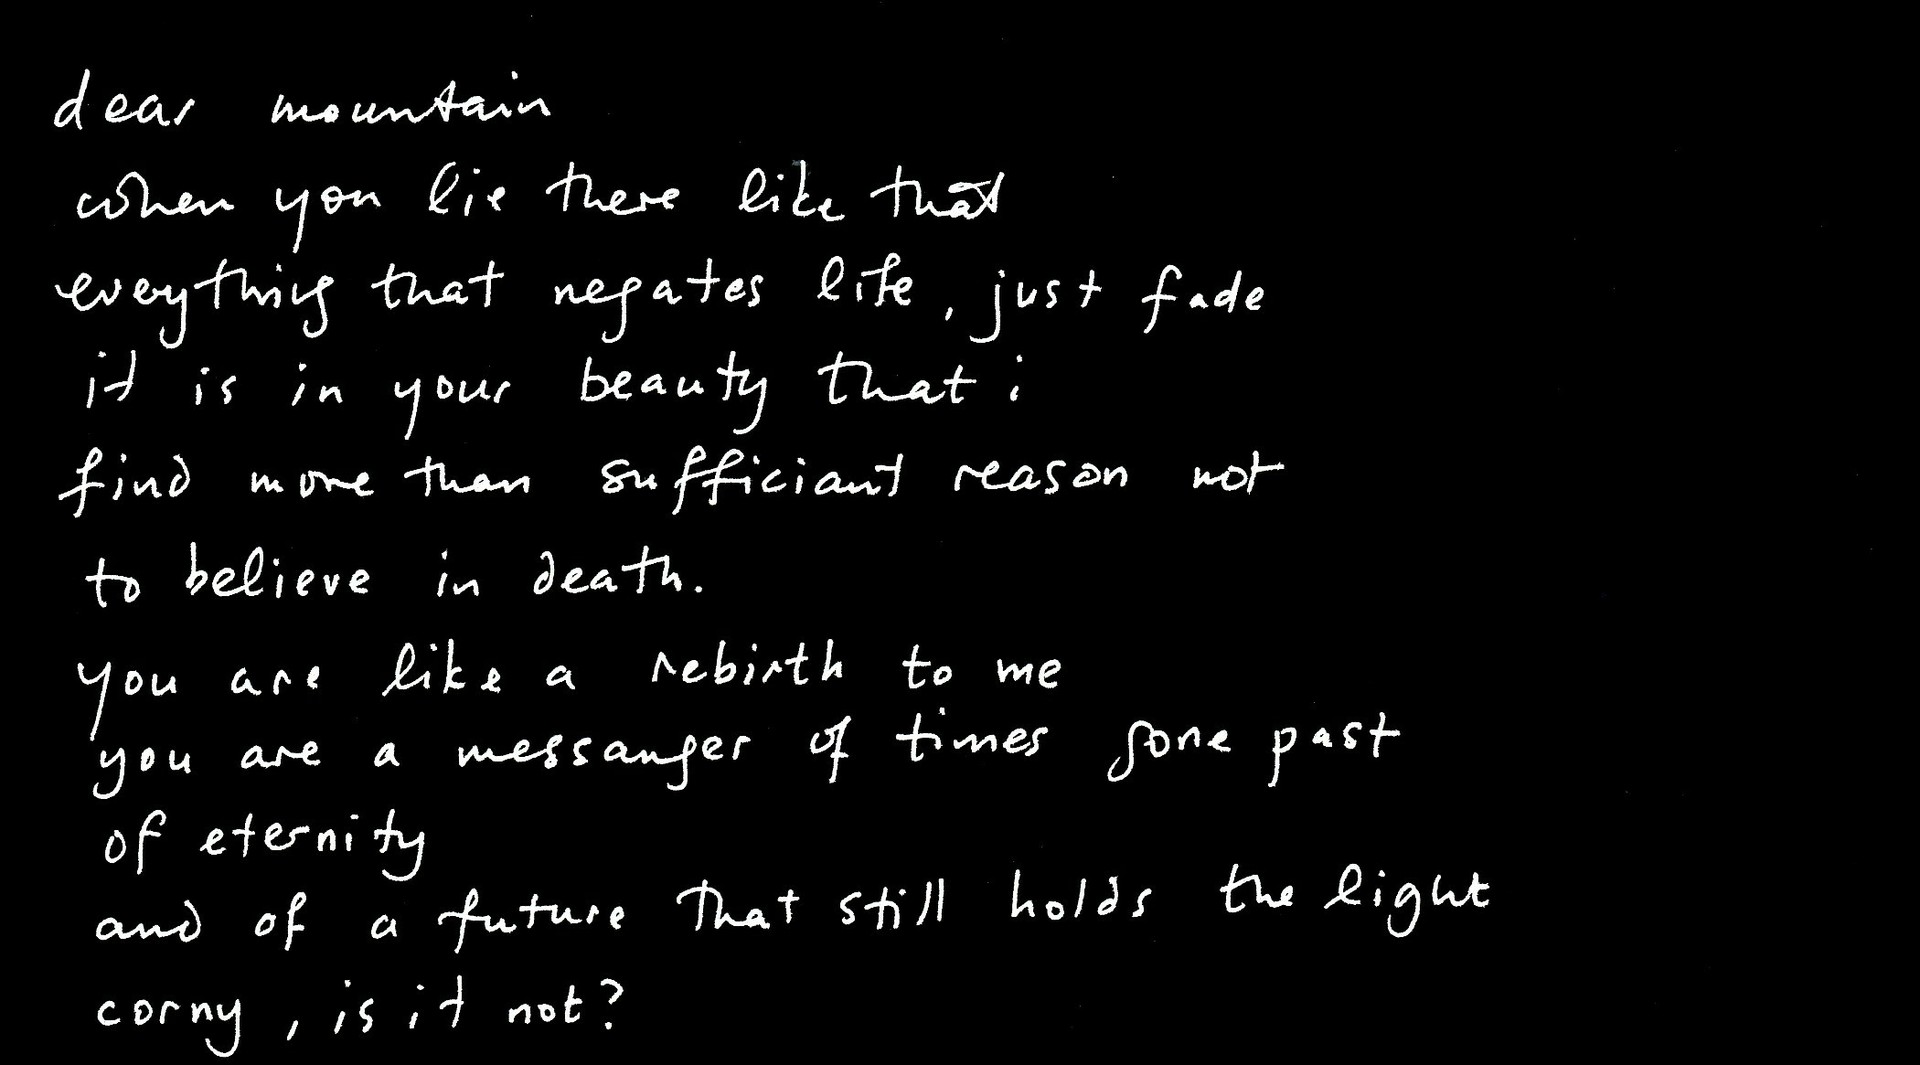 dear mountain
when you lie there like that
eveything that negates life, just fade
it is in your beauty that i
find more than sufficiant reason not
to believe in death.
you are like a rebirth to me
you are a messanger of times gone past
of eternity
and of a future that still holds the light
corny, is it not?